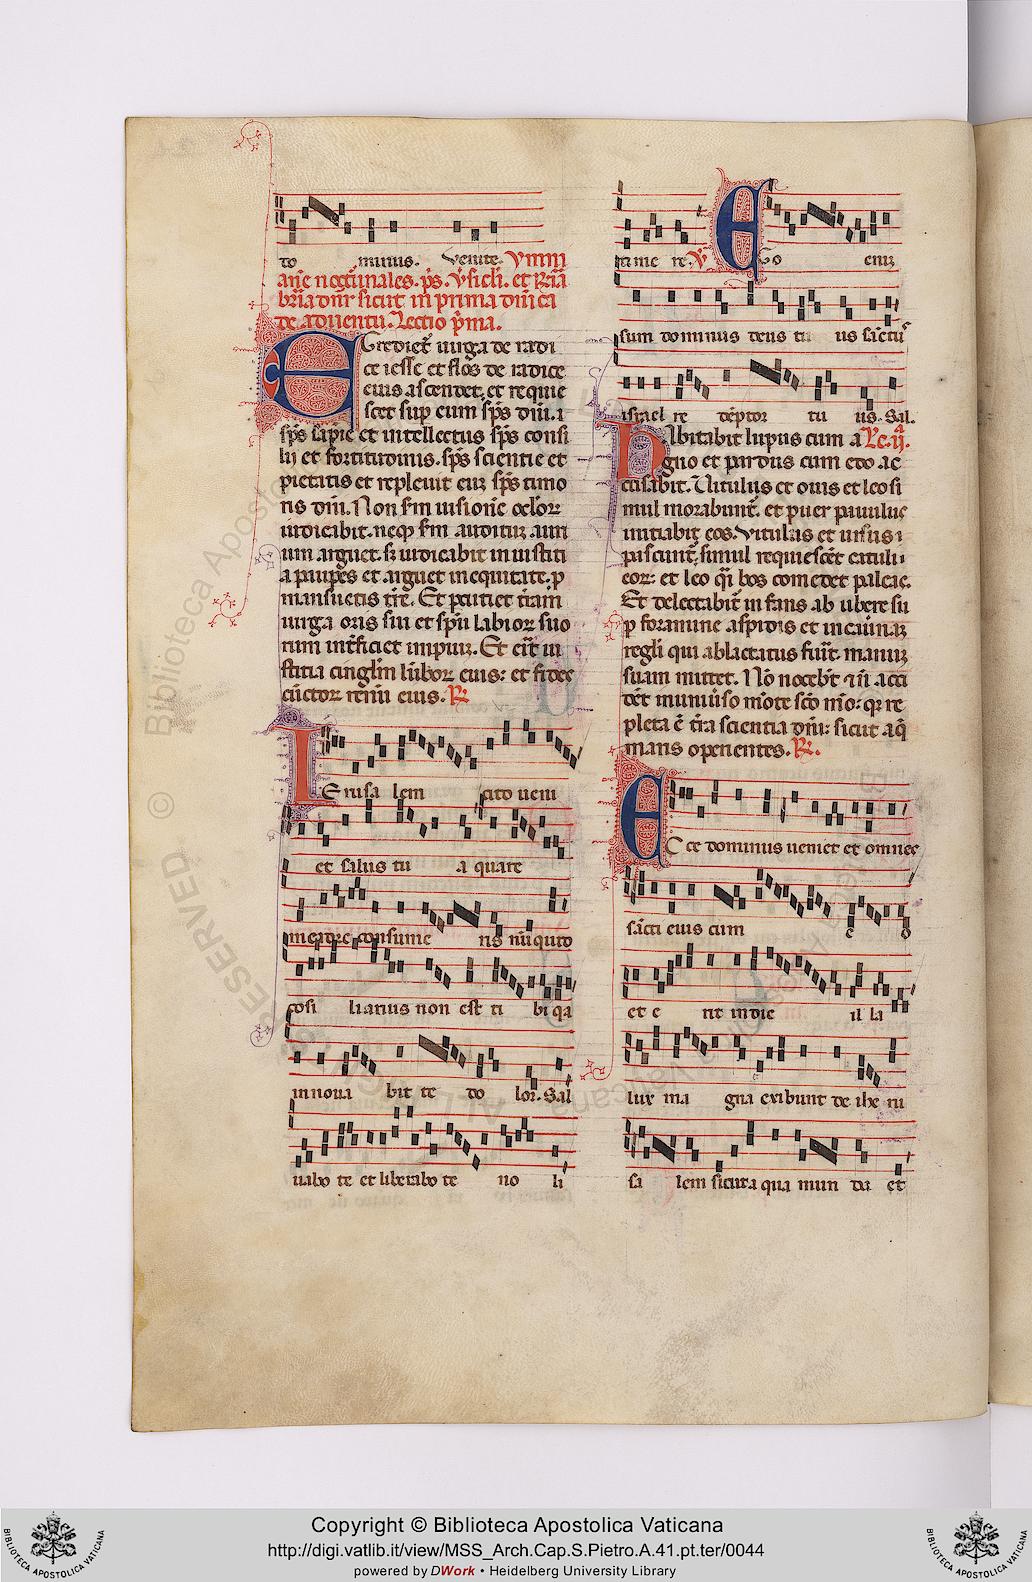 do minus. Venite. Ymni
tᷣ nocturnales. ps. v̾sicli. et
dn̄r sicut in prima dn̄ica
de aduentu. Lectio p̄ma.
Egrediet᷑ uirga de radi
ce iesse et flos de radice
eius ascendet. et requie
scet sup eum sp̄s dn̄i.
sp̄s sapīe et intellectus sp̄s consi
lij et fortitudinis. sp̄s scientie et
pietatis et repleuit eū sp̄s timo
ris dn̄i. Non s̄m uisionē oc̄lorꝝ
iudicabit. neqꝫ s̄m auditū auri
um arguet. sꝫ iudicabit in iustiti
a paup̄es et arguet in equitate. p̄
mansuetis tr̄e. Et p̄cutiet tr̄am
uirga oris sui et sp̄u labiorꝝ suo
rum int̄ficiet impiū. Et er̄it iu
stitia cinglm̄ lūborꝝ eius: et fides
cīctor renū eius. R̄.
Ierusa lem cito ueni
et salus tu a quare
merore consume ris nūquid
cōsi liarius non est ti bi qa
innoua bit te do lor. Sal
uabo te et liberabo te no li
time re. V̄ Ego enim
sum dominus deus tu us sāctus
israel re dēptor tu us. Sal.
Habitabit lupus cum a Lc̄. ij.
gno et pardus cum edo ac
cubabit. Uitulus et ouis et leo si
mul morabunt᷑. et puer paruulus
minabit eos. Vitulus et ursus
pascunt᷑. simul requiescēt catuli
eorꝝ: et leo q̄i bos comedet paleas.
Et delectabit᷑ infans ab ubere su
p foramine aspidis et in cauernā
regli qui ablactatus fuīt. manum
suam mittet. Nō nocebt᷑ et nō occi
dēt in uniu̾so mōte scō mō: qꝛ re
pleta ē tr̄a scientia dn̄i: sicut aq̄
maris operientes. R̄.
Ecce dominus ueniet et omnes
sācti eius cum e o
et e rit in die il la
lux ma gna exibunt de ihe ru
sa lem sicut a qua mun da et
Copyright © Biblioteca Apostolica Vaticana
http://digi.vatlib.it/view/MSS_Arch.Cap.S.Pietro.A.41.pt.ter/0044
powered by DWork • Heidelberg University Library